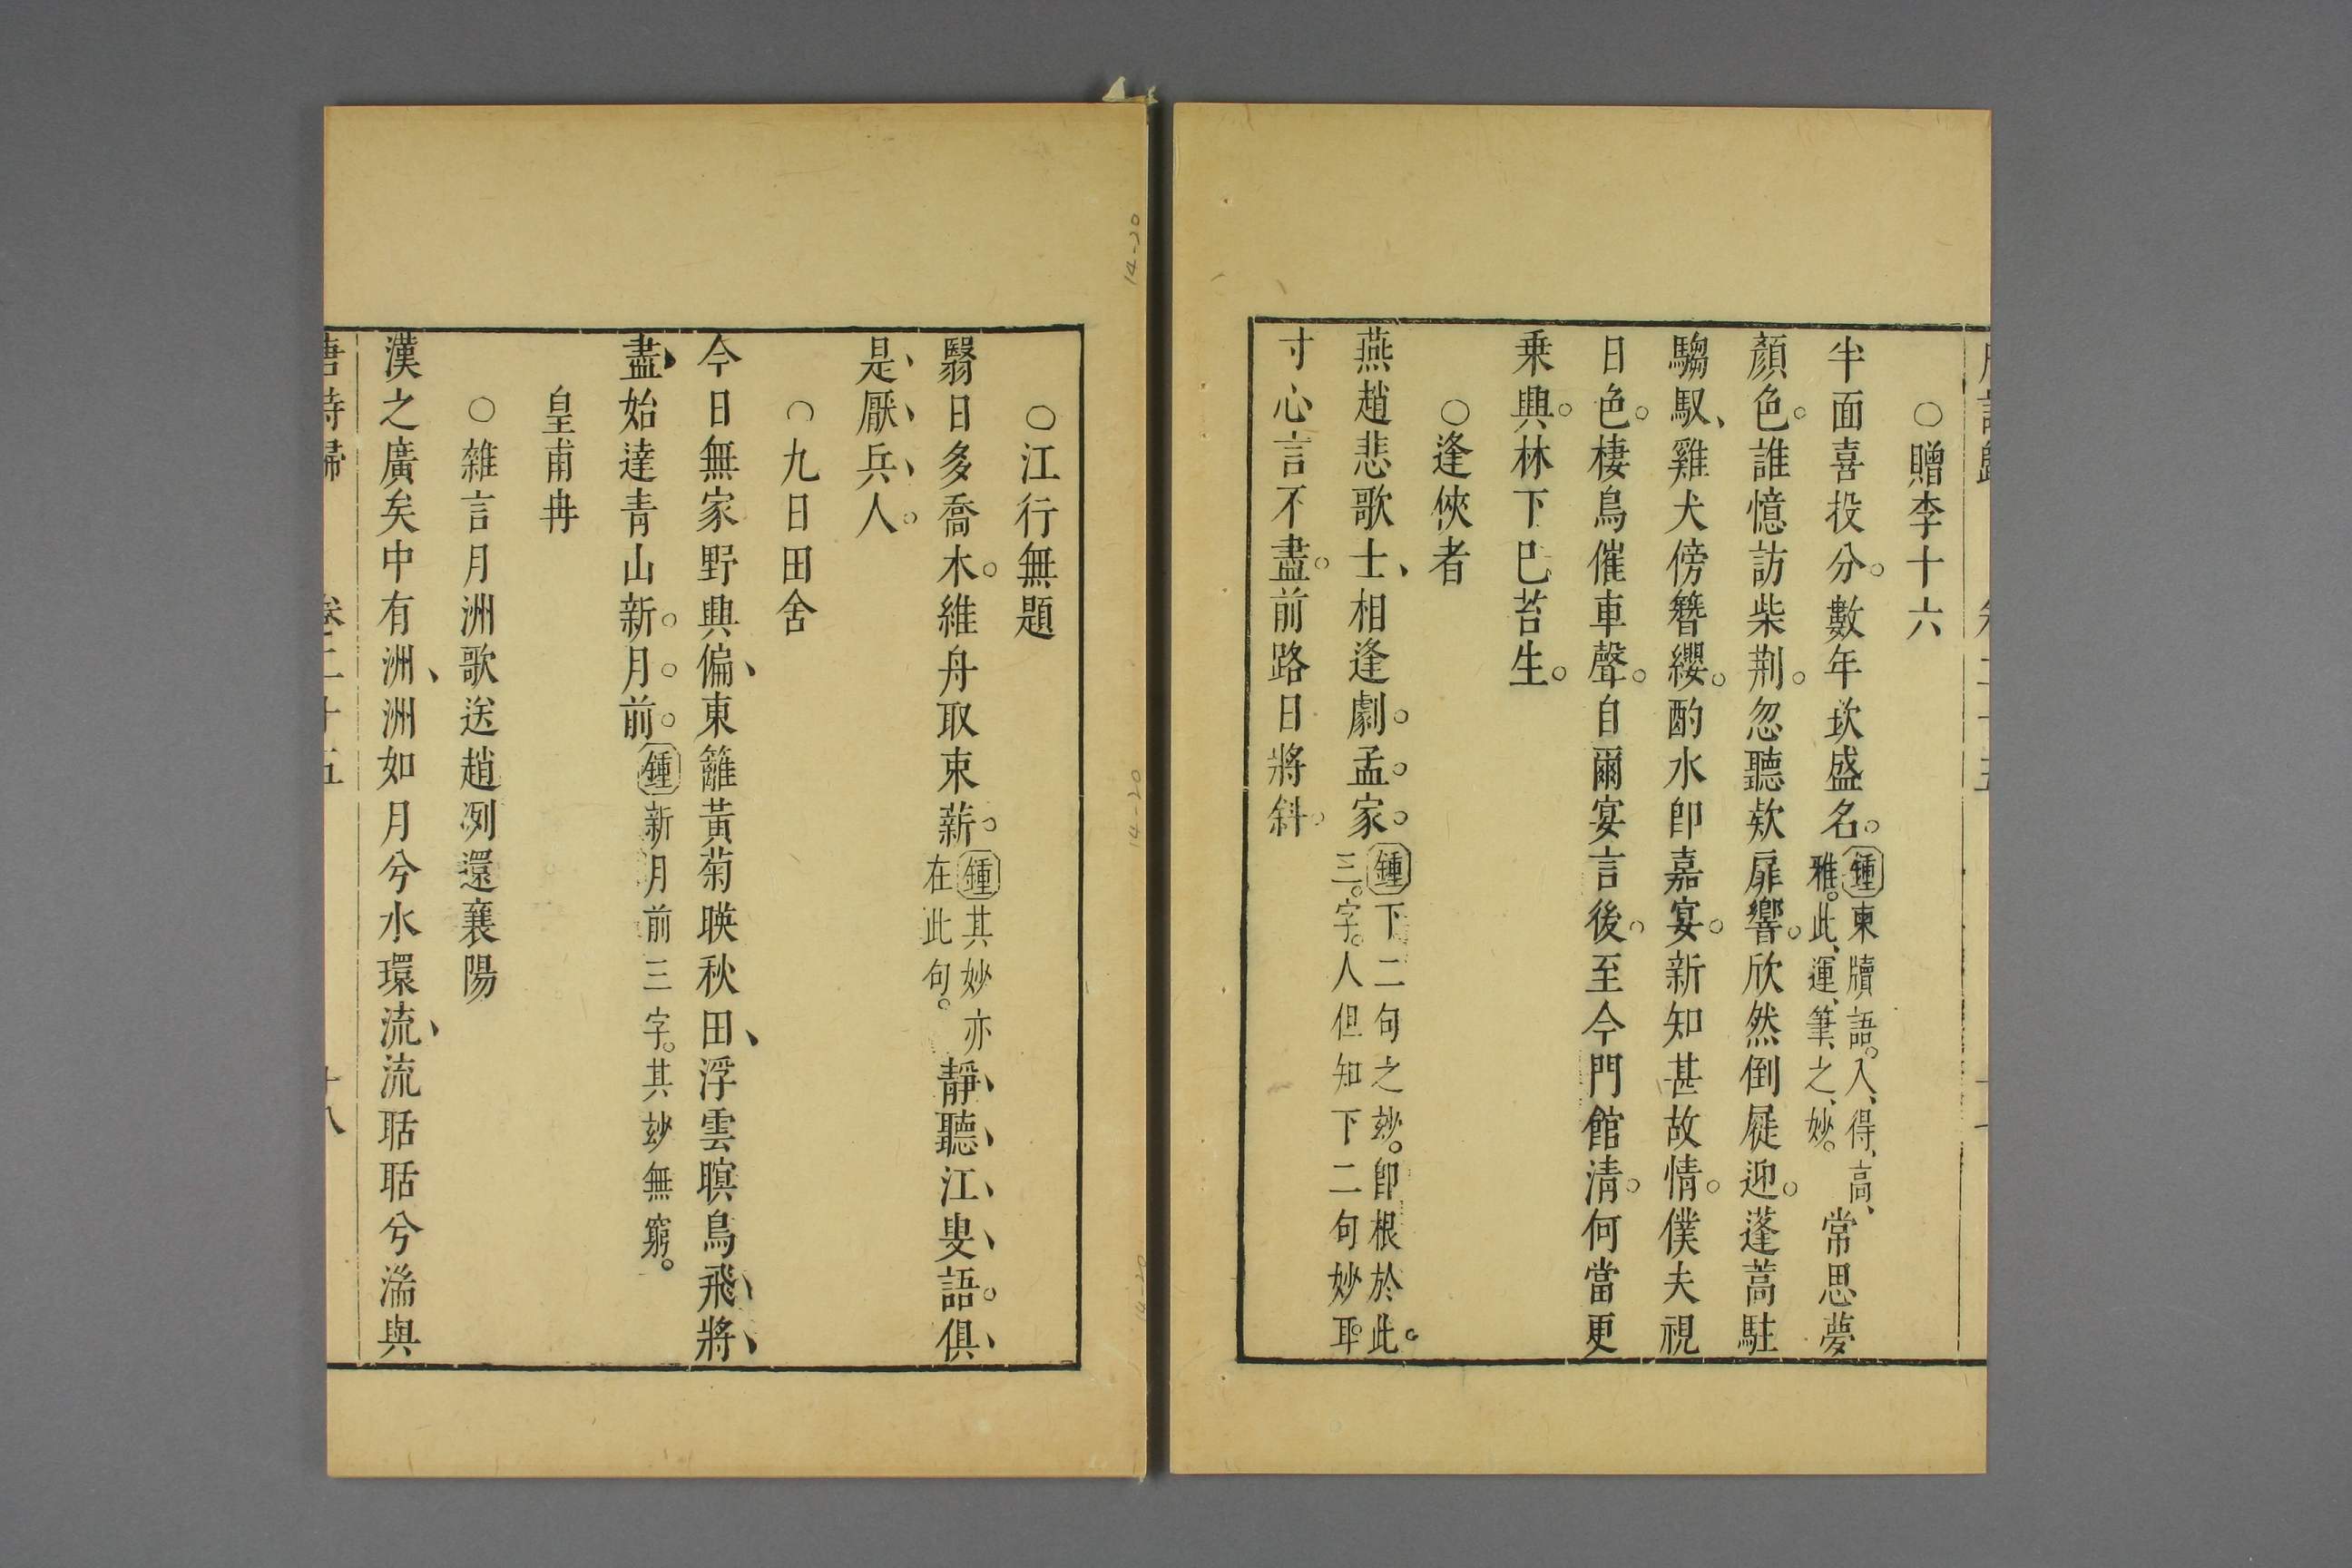 ○贈李十六
半面喜投分。數年坎盛名。鍾柬牘語。入、得、高、雅。此、運、筆、之、妙。常思夢
顏色。誰憶訪柴荆。忽聽欵扉響。欣然倒屣迎。蓬蒿駐
騶馭、雞犬傍簪纓。酌水卽嘉宴。新知甚故情。僕夫視
日色。棲鳥催車聲。自爾宴言後。至今門館清。何當更
乗興。林下巳苔生。
○逢俠者
燕趙悲歌士、相逢劇。孟。家。鍾下二句之玅。卽根於此。三。字。人但知下二句妙耳。
寸心言不盡。前路日將斜。
○江行無題
翳日多喬木。維舟取束薪。鍾其妙亦在此句。靜、聽、江、叟、語。俱、
是、厭、兵、人。
○九日田舍
今日無家野興偏、東籬黃菊暎秋田、浮雲暝鳥飛、將、
盡、始達青山新。月。前。鍾新月前三字。其玅無窮。
皇甫冉
○雜言月洲歌送趙冽還襄陽
漢之廣矣中有洲、洲如月兮水環流、流聒聒兮湍與
唐詩歸 卷二十五 十八
14-20
14-20
14-20